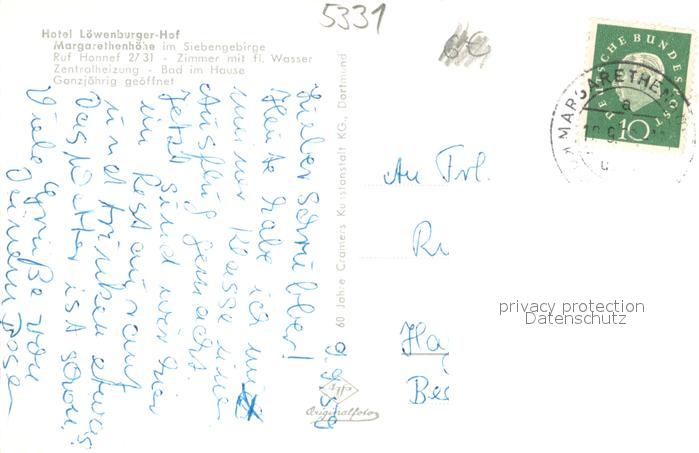 5331
6€
Hotel Löwenburger-Hof
Margarethenhöhe im Siebengebirge
Ruf Honnef 2/31 - Zimmer mit fl. Wasser
Zentralheizung - Bad im Hause
Ganzjährig geöffnet
9.9.59
Lieber
Heute habe ich mit
meiner Klasse eine
Ausflug gemacht.
Jetzt sind wir hier
im Restaurant
und trinken etwas.
Das Wetter ist schön.
Viele Grüße von
Deinem
60 Jahre Cramers Kunstanstalt KG., Dortmund
Originalfoto
DEUTSCHE BUNDESPOST
10
MARGARETHEN
a
An Frl.
R
Ha
Be
privacy protection
Datenschutz